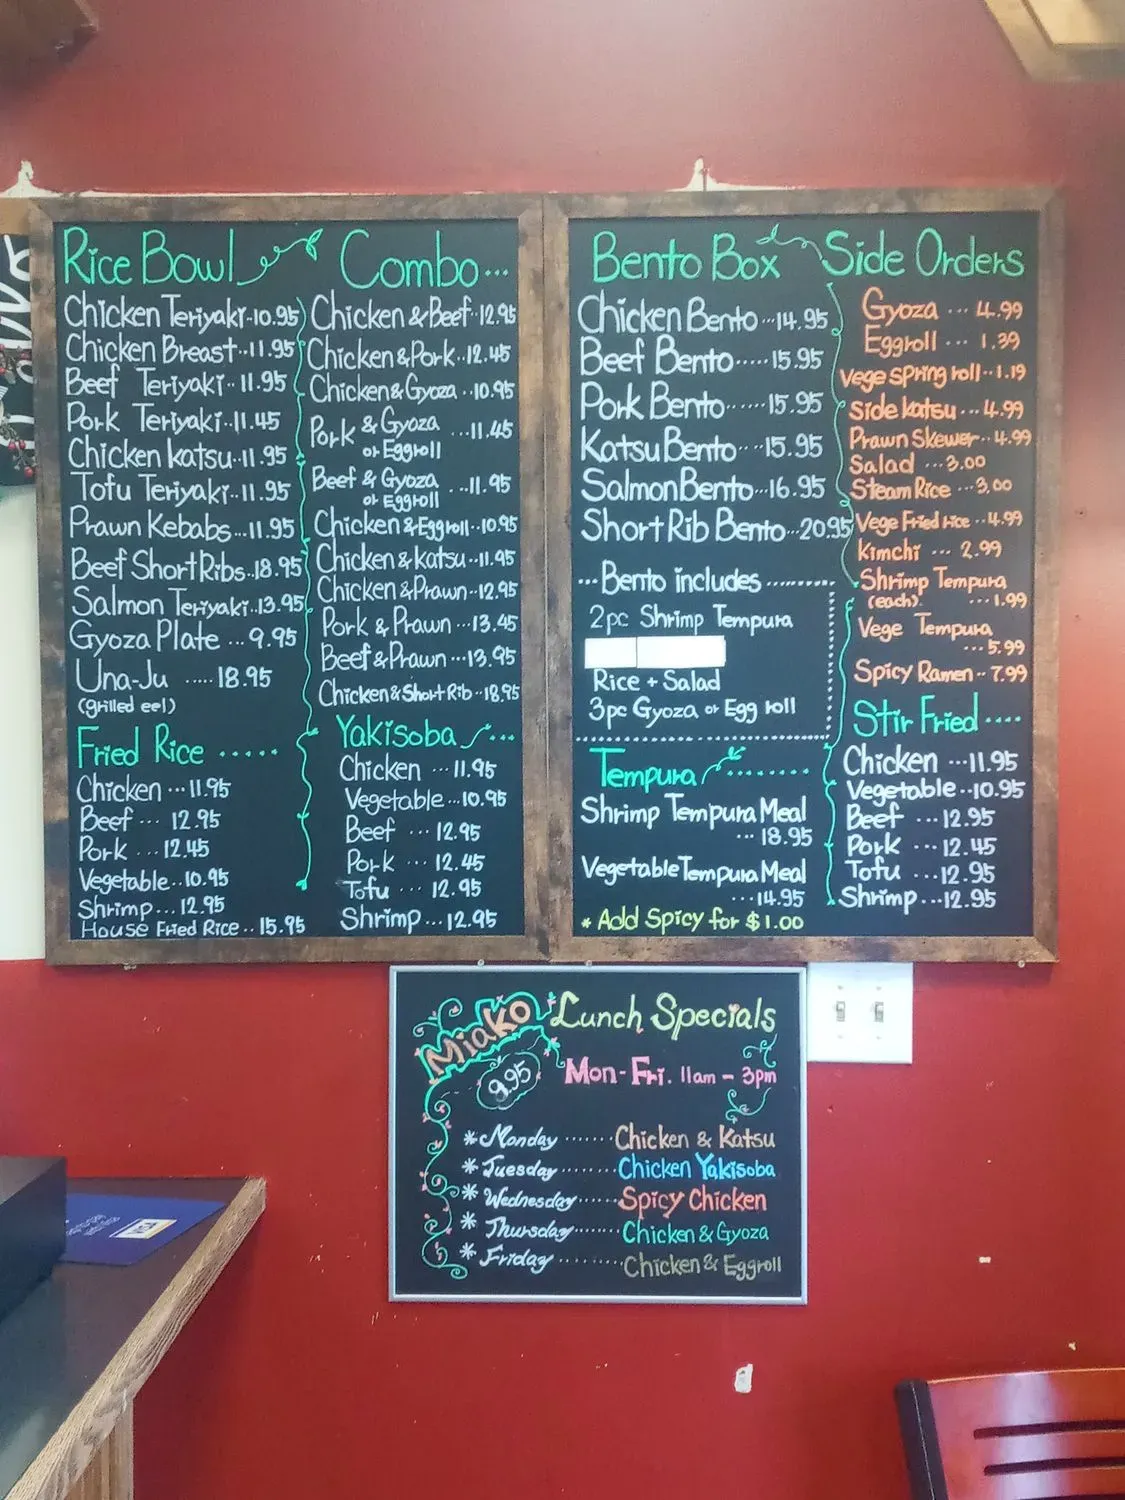 Rice Bowl
Chicken Teriyaki..10.95
Chicken Breast..11.95
Beef Teriyaki..11.95
Pork Teriyaki..11.45
Chicken Katsu..11.95
Tofu Teriyaki..11.95
Prawn Kebabs...11.95
Beef Short Ribs..18.95
Salmon Teriyaki..13.95
Gyoza Plate ...9.95
Una-Ju .....18.95
(grilled eel)
Fried Rice .....
Chicken ...11.95
Beef ... 12.95
Pork ...12.45
Vegetable..10.95
Shrimp...12.95
House Fried Rice..15.95
Combo...
Chicken & Beef..12.95
Chicken & Pork..12.45
Chicken & Gyoza ..10.95
Pork & Gyoza ...11.45
or Eggroll
Beef & Gyoza ...11.95
or Eggroll
Chicken & Eggroll..10.95
Chicken & Katsu..11.95
Chicken & Prawn..12.95
Pork & Prawn...13.45
Beef & Prawn...13.95
Chicken & Short Rib..18.95
Yakisoba ...
Chicken ...11.95
Vegetable...10.95
Beef ... 12.95
Pork ... 12.45
Tofu ... 12.95
Shrimp...12.95
Bento Box
Chicken Bento...14.95
Beef Bento.....15.95
Pork Bento......15.95
Katsu Bento...15.95
Salmon Bento...16.95
Short Rib Bento...20.95
...Bento includes.........
2pc Shrimp Tempura
Rice + Salad
3pc Gyoza or Egg roll
Tempura ........
Shrimp Tempura Meal
...18.95
Vegetable Tempura Meal
...14.95
* Add Spicy for $1.00
Side Orders
Gyoza ... 4.99
Eggroll ... 1.39
Vege spring roll..1.19
Side katsu ...4.99
Prawn Skewer..4.99
Salad ...3.00
Steam Rice ...3.00
Vege Fried rice..4.99
Kimchi ... 2.99
Shrimp Tempura
(each). ...1.99
Vege Tempura
...5.99
Spicy Ramen..7.99
Stir Fried ....
Chicken ...11.95
Vegetable..10.95
Beef ...12.95
Pork ... 12.45
Tofu ...12.95
Shrimp...12.95
Miako
9.95
Lunch Specials
Mon-Fri. 11am - 3pm
* Monday .......Chicken & Katsu
* Tuesday ........Chicken Yakisoba
* Wednesday......Spicy Chicken
* Thursday.......Chicken & Gyoza
* Friday .........Chicken & Eggroll